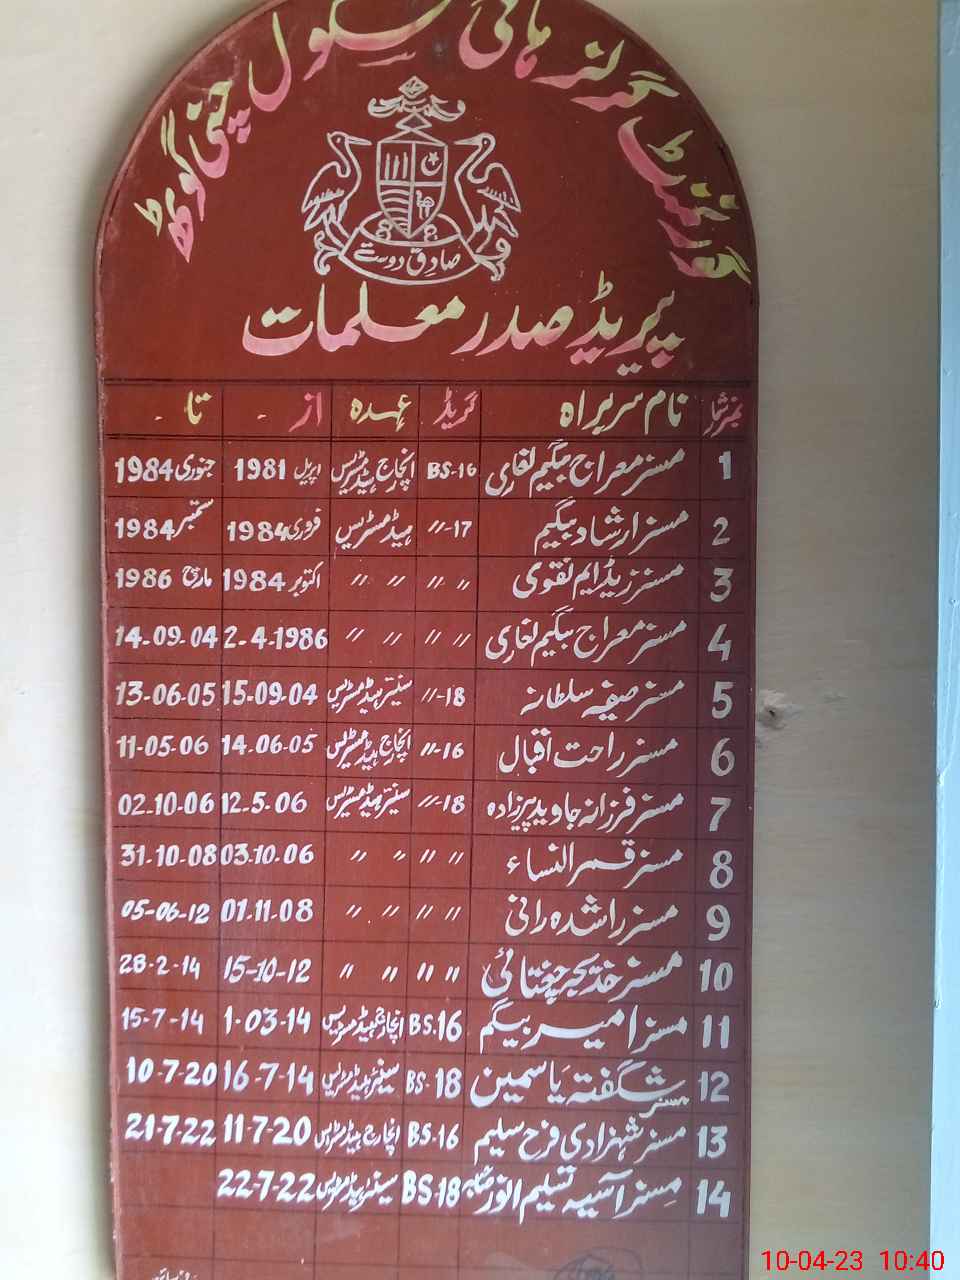 گورنمنٹ گرلز ہائی سکول چنی گوٹھ
صادق دوست
پیریڈ صدر معلمات
نمبرشمار نام سربراہ گریڈ عہدہ از تا
1 مسز معراج بیگم لغاری BS-16 انچارج ہیڈمسٹریس اپریل 1981 جنوری 1984
2 مسز ارشاد بیگم 〃-17 ہیڈمسٹریس فروری 1984 ستمبر 1984
3 مسز زیڈ ایم نقوی 〃 〃 〃 〃 اکتوبر 1984 مارچ 1986
4 مسز معراج بیگم لغاری 〃 〃 〃 〃 2-4-1986 14-09-04
5 مسز صفیہ سلطانہ 〃-18 سنیئر ہیڈمسٹریس 15-09-04 13-06-05
6 مسز راحت اقبال 〃-16 انچارج ہیڈمسٹریس 14.06-05 11-05-06
7 مسز فرزانہ جاوید پیرزادہ 〃-18 سنیئر ہیڈمسٹریس 12-5-06 02-10-06
8 مسز قمر النساء 〃 〃 〃 〃 03-10-06 31-10-08
9 مسز راشدہ رانی 〃 〃 〃 〃 01-11-08 05-06-12
10 مسز خدیجہ چغتائی 〃 〃 〃 〃 15-10-12 28-2-14
11 مسز امیر بیگم BS.16 انچارج ہیڈمسٹریس 1-03-14 15-7-14
12 مسز شگفتہ یاسمین BS-18 سینئر ہیڈمسٹریس 16-7-14 10-7-20
13 مسز شہزادی فرح سلیم BS-16 انچارج ہیڈمسٹریس 11-7-20 21-7-22
14 مسز آسیہ تسلیم انور BS-18 سینئر ہیڈمسٹریس 22-7-22
10-04-23 10:40